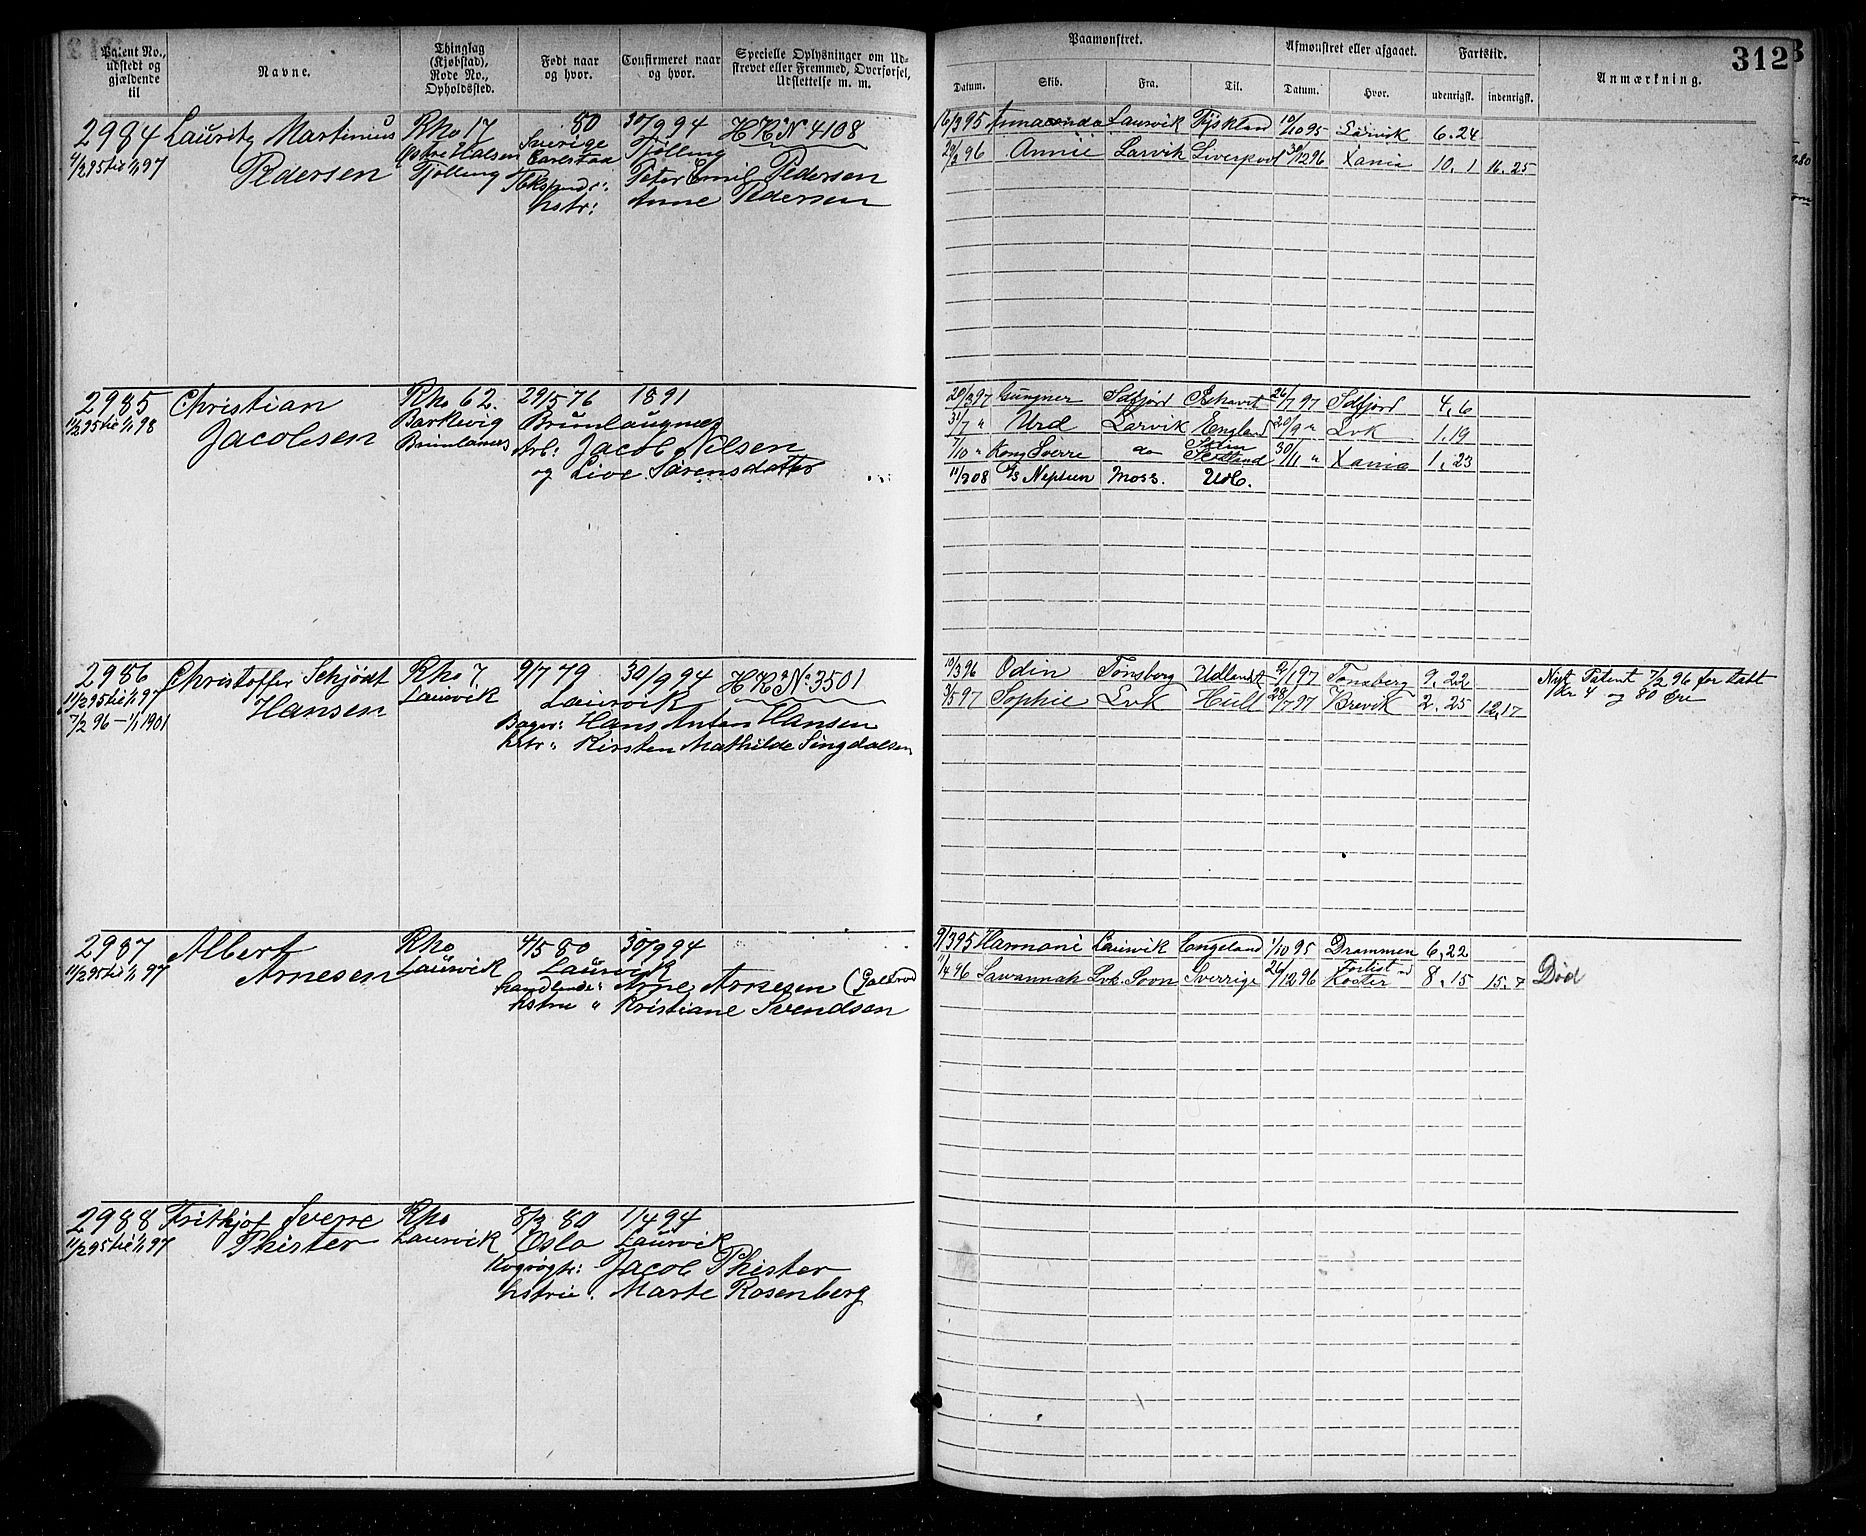 Patent No., udstedt og gjældende til
Navne.
Thinglag (Kjøbstad), Rode No., Opholdssted.
Født naar og hvor.
Confirmeret naar og hvor.
Specielle Oplysninger om Udstrevet eller Fremmed, Overførsel, Udslettelse m. m.
Paamønstret.
Afmønstret eller afgaaet.
Fartstid.
Anmærkning.
312
Datum.
Skib.
Fra.
Til.
Datum.
Hvor.
udenrigsk.
indenrigsk.
2984 Lauritz Martinius Rho 17 80 30/9 94 H.R. No 4108
Østre Halsen Sverige Tjølling
Pedersen Tjølling Peter Emil Pedersen
hstr: Anne Pedersen
16/3 95 Annaconda Laurvik Tyskland 10/10 95 Larvik 6.24
29/2 96 Annie Larvik Liverpool 30/12 96 Xania 10.1 16.25
2985 Christian Rho 62 29/5 76 1891
11/2 95 til 1/1 98 Jacobsen Barkevig Brunlaugnæs
Brunlanæs Arb: Jacob Nilsen
og Live Sørensdatter
20/2 97 Gungner Sdfjord 26/7 97 Sdfjord 4.6
31/7 " Urd Larvik England 20/9 " Lvk 1.19
7/10 " Kong Sverre do Skotland 30/11 " Xania 1.23
11/2 08 Neptun Moss. Udl.
2986 Christoffer Schjødt Rho 7 9/7 79 30/9 94 H.R. No 3501
11/2 95 til 1/1 97 Hansen Laurvik Laurvik
7/2 96 — 1/1 1901 Bager: Hans Anton Hansen
hstr: Kirsten Mathilde Singdalsen
10/3 96 Odin Tønsberg Udlandet 2/1 97 Tønsberg 9.22
3/5 97 Sophie Lvk Hull 28/7 97 Brevik 2.25 12.17
Nyt Patent 7/2 96 for tabt
Kr 4 og 80 øre
2987 Albert Rho 4/5 80 30/9 94
11/2 95 til 1/1 97 Arnesen Laurvik Laurvik
handlende: Arne Arnesen
hstru " Kristiane Svendsen
9/3 95 Laurvik Engeland 1/10 95 Drammen 6.22
11/4 96 Sawannah Lvk. Sverrige 26/12 96 Koster 8.15 15.7
Død
2988 Frithjof Sverre Rho 8/3 80 1/4 94
11/2 95 til 1/1 97 Phister Laurvik Oslo Laurvik
Jacob Phister
hstru: Marte Rosenberg